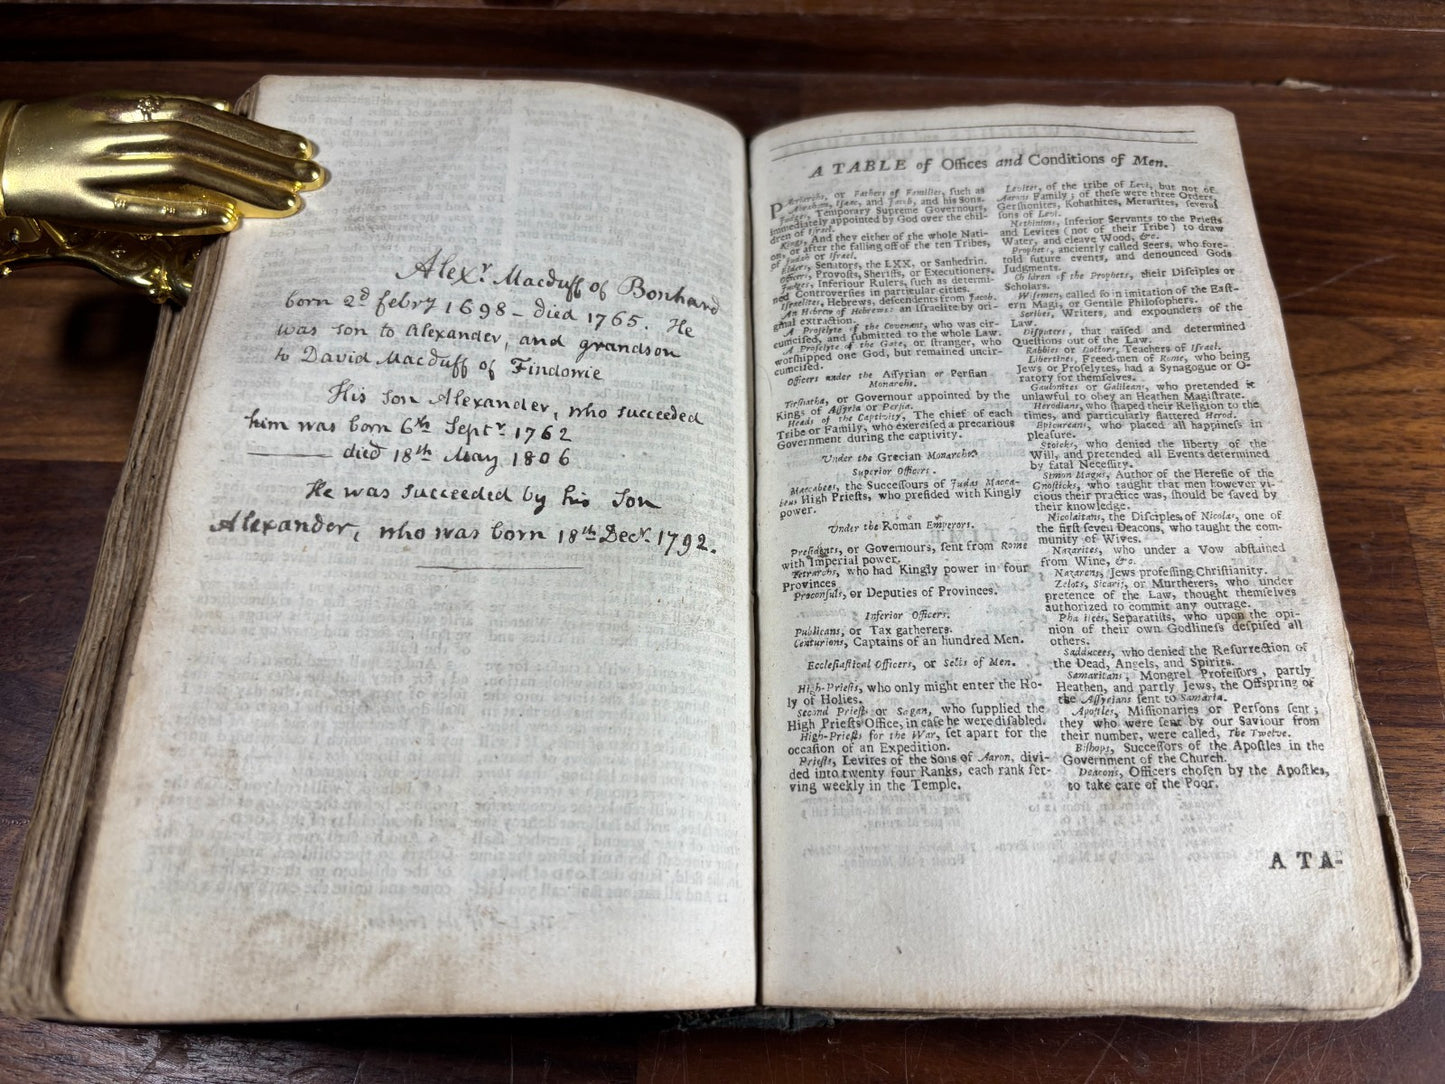 Alexr. Macduff of Bonhard
born 2d febry 1698 – died 1765. He
was son to Alexander, and grandson
to David Macduff of Findowie
His son Alexander, who succeeded
him was born 6th Septr. 1762
——— died 18th May 1806
He was succeeded by his Son
Alexander, who was born 18th Decr. 1792.
A TABLE of Offices and Conditions of Men.
PAtriarchs, or Fathers of Families, such as
Abraham, Isaac, and Jacob, and his Sons.
Judges, Temporary Supreme Governours,
immediately appointed by God over the chil-
dren of Israel.
Kings, And they either of the whole Nati-
on, or after the falling off of the ten Tribes,
of Judah or Israel.
Elders, Senators, the LXX, or Sanhedrin.
Officers, Provosts, Sheriffs, or Executioners.
Judges, Inferiour Rulers, such as determi-
ned Controversies in particular cities.
Israelites, Hebrews, descendents from Jacob.
An Hebrew of Hebrews: an Israelite by ori-
ginal extraction.
A Proselyte of the Covenant, who was cir-
cumcised, and submitted to the whole Law.
A Proselyte of the Gate, or stranger, who
worshipped one God, but remained uncir-
cumcised.
Officers under the Assyrian or Persian
Monarchs.
Tirshatha, or Governour appointed by the
Kings of Assyria or Persia.
Heads of the Captivity, The chief of each
Tribe or Family, who exercised a precarious
Government during the captivity.
Under the Grecian Monarchs
Superior Officers.
Maccabees, the Successours of Judas Macca-
beus High Priests, who presided with Kingly
power.
Under the Roman Emperors.
Presidents, or Governours, sent from Rome
with Imperial power.
Tetrarchs, who had Kingly power in four
Provinces
Proconsuls, or Deputies of Provinces.
Inferior Officers.
Publicans, or Tax gatherers.
Centurions, Captains of an hundred Men.
Ecclesiastical Officers, or Sects of Men.
High-Priests, who only might enter the Ho-
ly of Holies.
Second Priests or Sagan, who supplied the
High Priests Office, in case he were disabled.
High-Priests for the War, set apart for the
occasion of an Expedition.
Priests, Levites of the Sons of Aaron, divi-
ded into twenty four Ranks, each rank ser-
ving weekly in the Temple.
Levites, of the tribe of Levi, but not of
Aarons Family; of these were three Orders,
Gershonites, Kohathites, Merarites, several
sons of Levi.
Nethinims, Inferior Servants to the Priests
and Levites (not of their Tribe) to draw
Water, and cleave Wood, &c.
Prophets, anciently called Seers, who fore-
told future events, and denounced Gods
Judgments.
Children of the Prophets, their Disciples or
Scholars.
Wisemen, called so in imitation of the East-
ern Magi, or Gentile Philosophers.
Scribes, Writers, and expounders of the
Law.
Disputers, that raised and determined
Questions out of the Law.
Rabbies or Doctors, Teachers of Israel.
Libertines, Freed-men of Rome, who being
Jews or Proselytes, had a Synagogue or O-
ratory for themselves.
Gaulonites or Galileans, who pretended it
unlawful to obey an Heathen Magistrate.
Herodians, who shaped their Religion to the
times, and particularly flattered Herod.
Epicureans, who placed all happiness in
pleasure.
Stoicks, who denied the liberty of the
Will, and pretended all Events determined
by fatal Necessity.
Simon Magus, Author of the Heresie of the
Gnosticks, who taught that men however vi-
cious their practice was, should be saved by
their knowledge.
Nicolaitans, the Disciples of Nicolas, one of
the first seven Deacons, who taught the com-
munity of Wives.
Nazarites, who under a Vow abstained
from Wine, &c.
Nazarens, Jews professing Christianity.
Zelots, Sicarii, or Murtherers, who under
pretence of the Law, thought themselves
authorized to commit any outrage.
Pharisees, Separatists, who upon the opi-
nion of their own Godliness despised all
others.
Sadducees, who denied the Resurrection of
the Dead, Angels, and Spirits.
Samaritans, Mongrel Professors, partly
Heathen, and partly Jews, the Offspring of
the Assyrians sent to Samaria.
Apostles, Missionaries or Persons sent;
they who were sent by our Saviour from
their number, were called, The Twelve.
Bishops, Successors of the Apostles in the
Government of the Church.
Deacons, Officers chosen by the Apostles,
to take care of the Poor.
A TA-